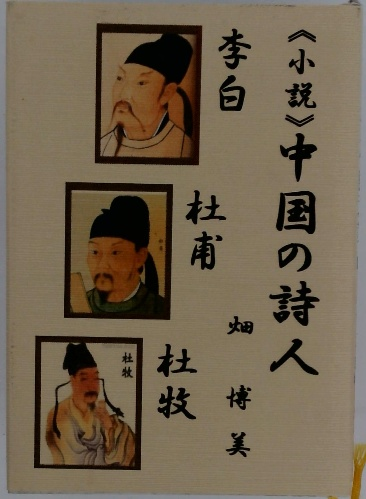 《小説》中国の詩人
李白
杜甫
杜牧
畑博美
杜牧